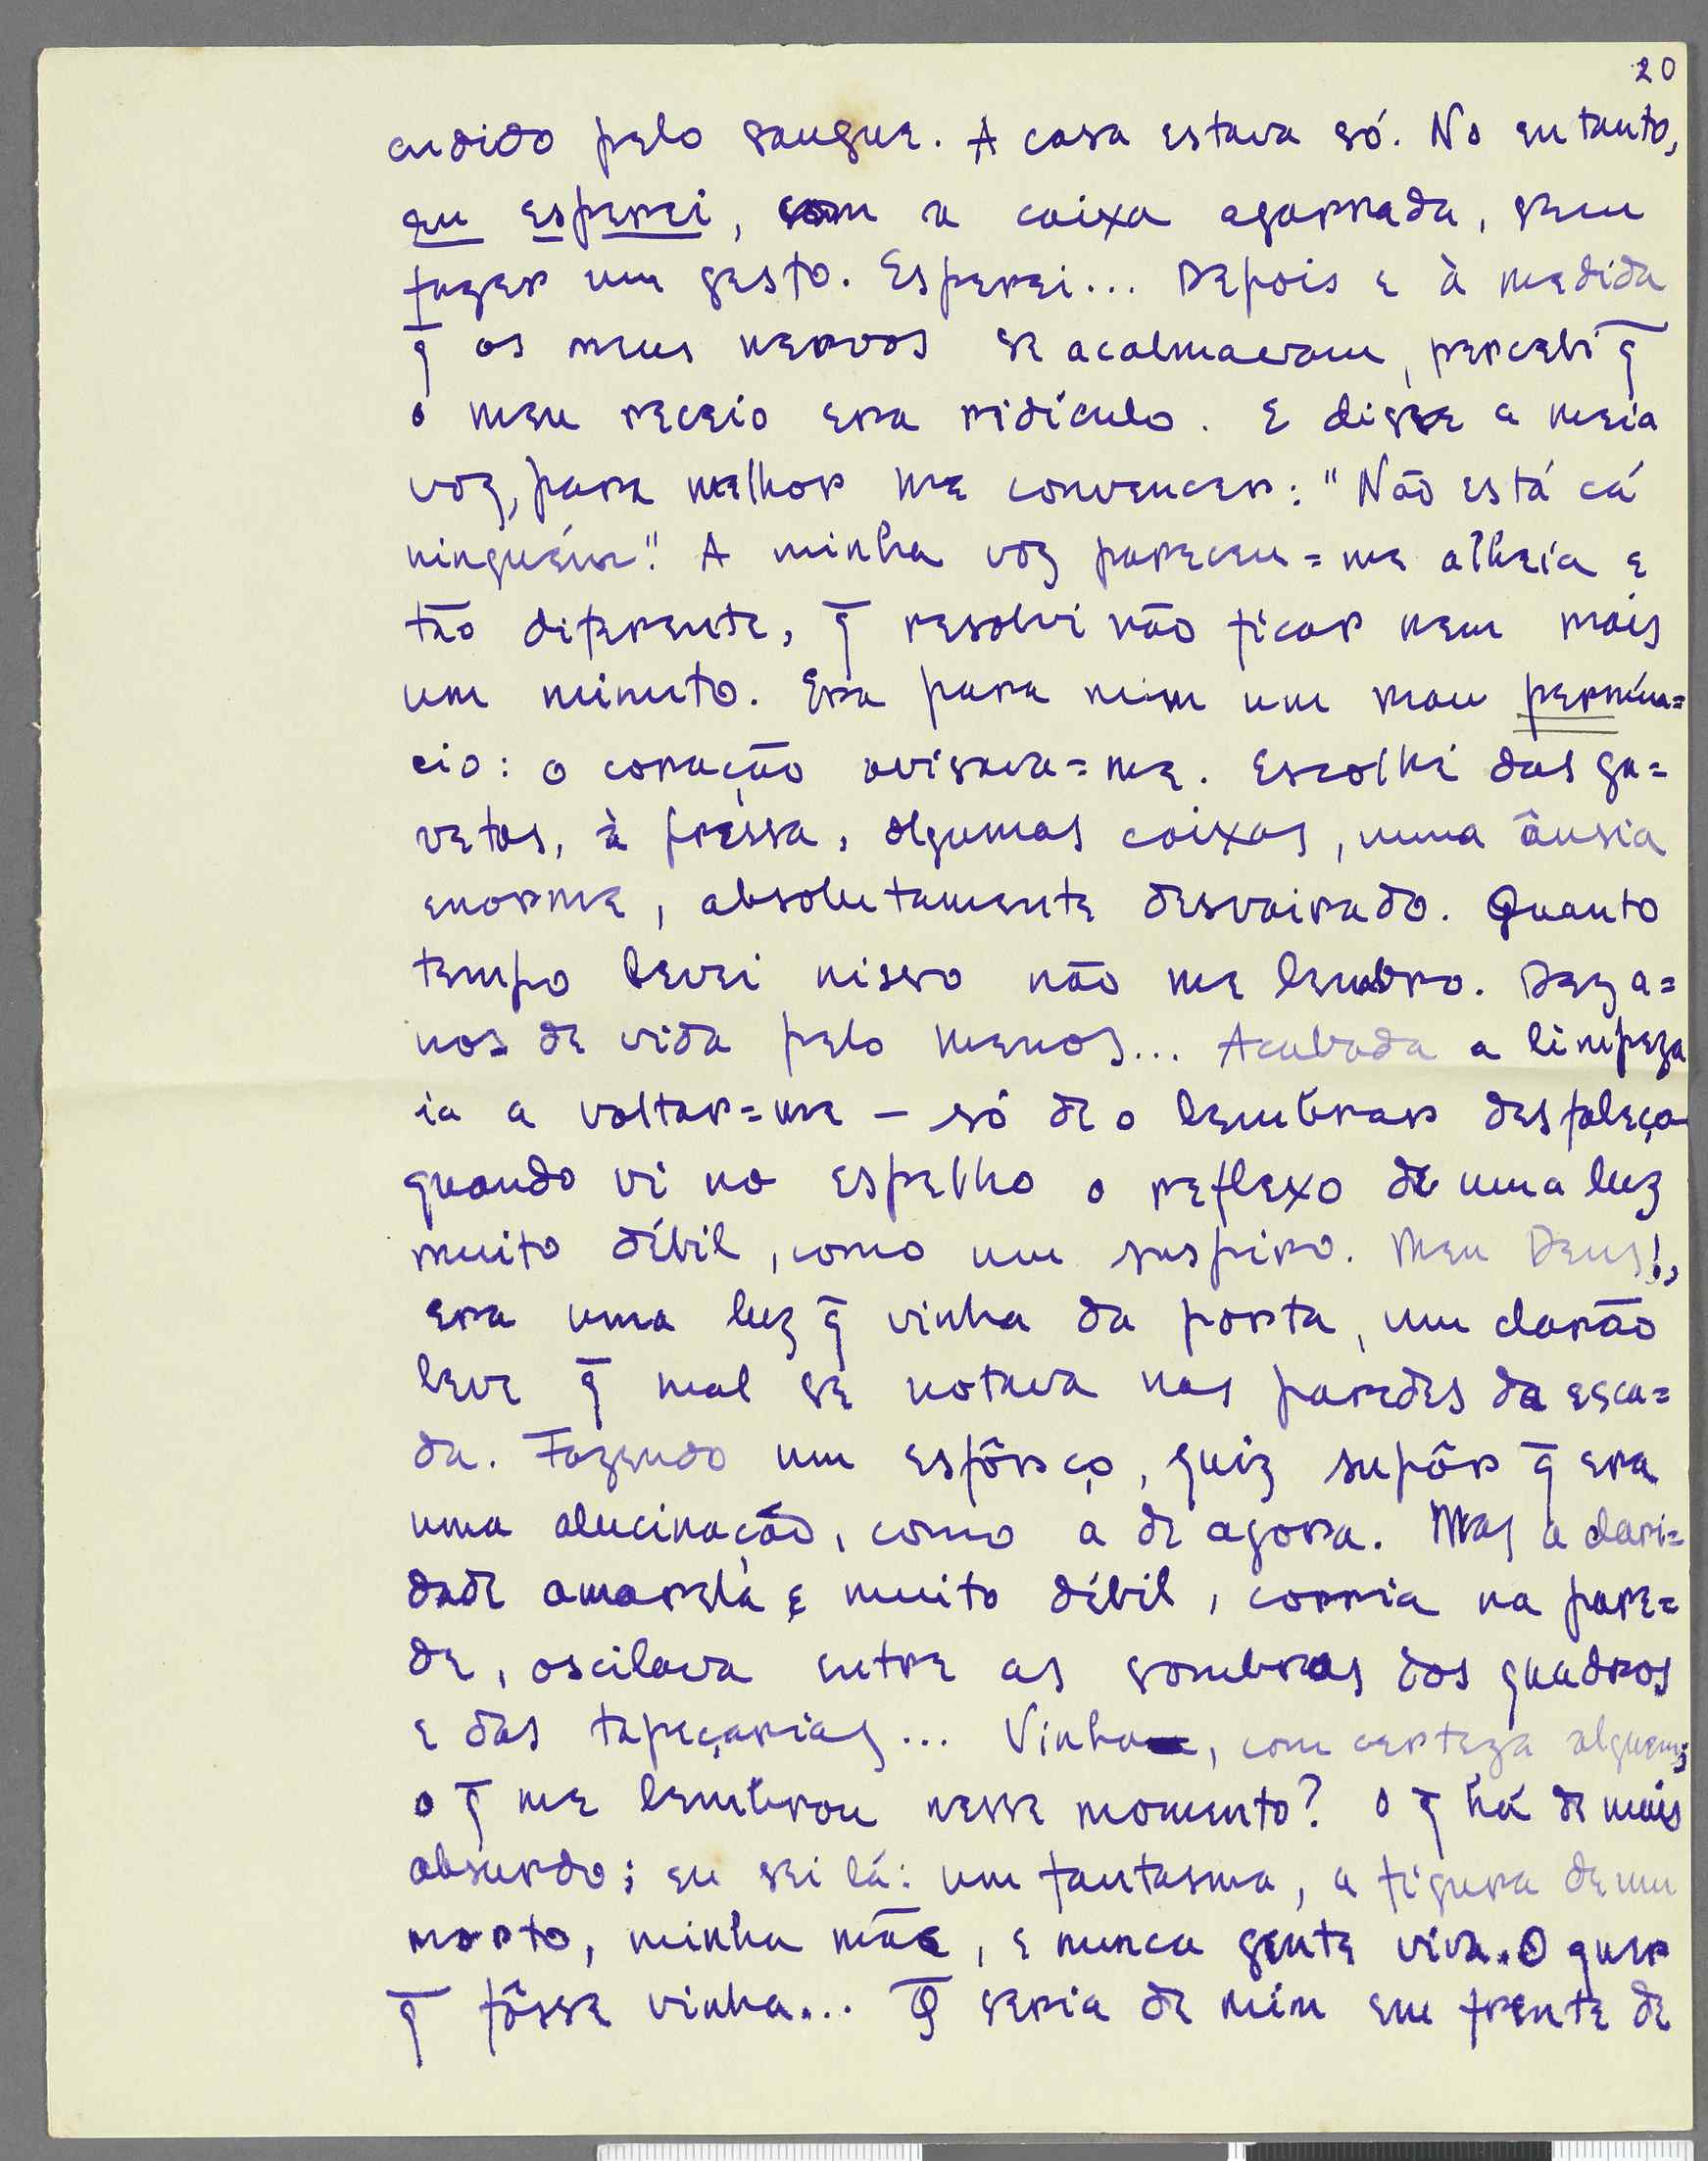 20
cudido pelo sangue. A casa estava só. No entanto,
eu esperei, com a caixa agarrada, sem
fazer um gesto. Esperei... Depois e à medida
q̄ os meus nervos se acalmavam, percebi q̄
o meu receio era ridículo. E disse a meia
voz, para melhor me convencer: "Não está cá
ninguém." A minha voz pareceu=me alheia e
tão diferente, q̄ resolvi não ficar nem mais
um minuto. Era para mim um mau pernún=
cio: o coração avisava=me. Escolhi das ga=
vetas, à pressa, algumas caixas, numa ânsia
enorme, absolutamente desvairado. Quanto
tempo levei nisso não me lembro. Dez a=
nos de vida pelo menos... Acabada a limpeza
ia a voltar=me – só de o lembrar desfaleço
quando vi no espelho o reflexo de uma luz
muito débil, como um suspiro. Meu Deus!,
era uma luz q̄ vinha da porta, um clarão
leve q̄ mal se notava nas paredes da esca=
da. Fazendo um esfôrço, quiz supôr q̄ era
uma alucinação, como a de agora. Mas a clari=
dade amarela e muito débil, corria na pare=
de, oscilava entre as sombras dos quadros
e das tapeçarias... Vinha, com certeza alguem;
o q̄ me lembrou nesse momento? O q̄ há de mais
absurdo; eu sei lá: um fantasma, a figura de um
morto, minha mãe, e nunca gente viva. O quer
q̄ fôsse vinha... Q̄ seria de mim em frente de